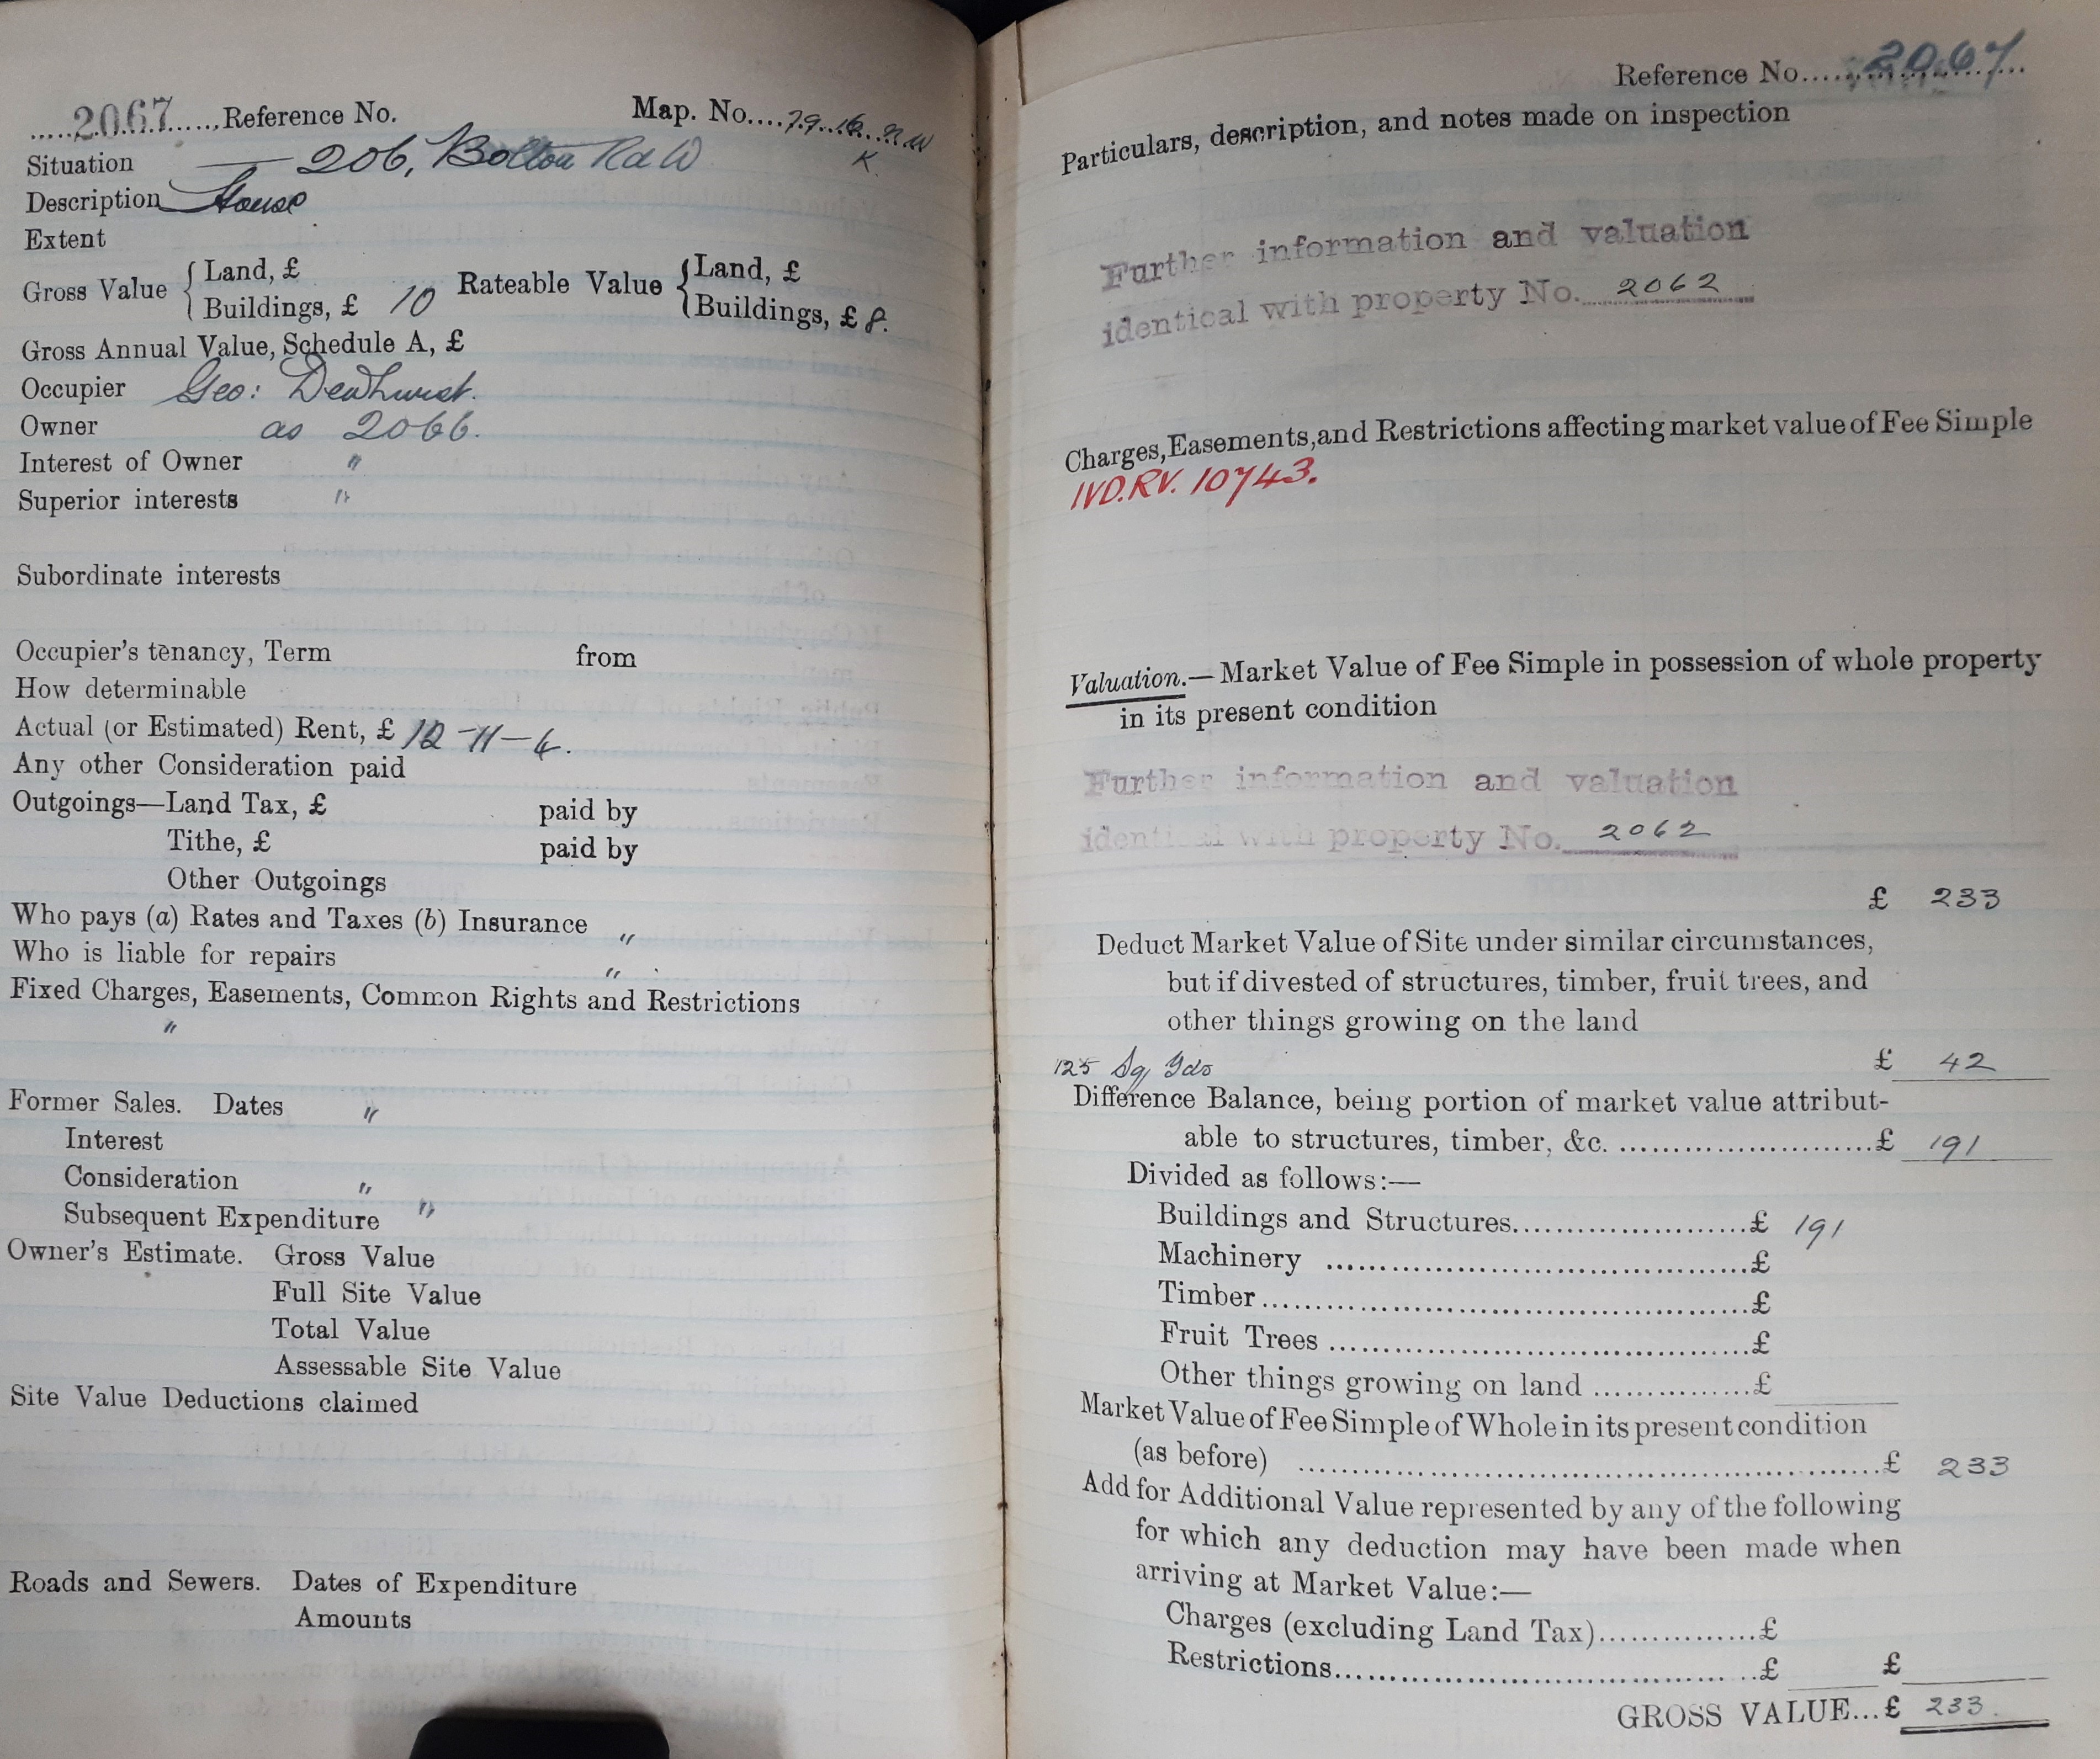 2067 Reference No. Map. No. 79. 16. N.W
K
Situation — 206, Bolton Rd W
Description House
Extent
Gross Value { Land, £ Rateable Value { Land, £
Buildings, £ 10 Buildings, £ 8.
Gross Annual Value, Schedule A, £
Occupier Geo: Dewhurst.
Owner as 2066.
Interest of Owner "
Superior interests "
Subordinate interests
Occupier's tenancy, Term from
How determinable
Actual (or Estimated) Rent, £ 12-11-4.
Any other Consideration paid
Outgoings—Land Tax, £ paid by
Tithe, £ paid by
Other Outgoings
Who pays (a) Rates and Taxes (b) Insurance "
Who is liable for repairs "
Fixed Charges, Easements, Common Rights and Restrictions
"
Former Sales. Dates "
Interest
Consideration "
Subsequent Expenditure "
Owner's Estimate. Gross Value
Full Site Value
Total Value
Assessable Site Value
Site Value Deductions claimed
Roads and Sewers. Dates of Expenditure
Amounts
Reference No. 2067
Particulars, description, and notes made on inspection
Further information and valuation
identical with property No. 2062
Charges, Easements, and Restrictions affecting market value of Fee Simple
IVD.RV. 10743.
Valuation.—Market Value of Fee Simple in possession of whole property
in its present condition
Further information and valuation
identical with property No. 2062
£ 233
Deduct Market Value of Site under similar circumstances,
but if divested of structures, timber, fruit trees, and
other things growing on the land
125 Sq Yds £ 42
Difference Balance, being portion of market value attribut-
able to structures, timber, &c. £ 191
Divided as follows:—
Buildings and Structures £ 191
Machinery £
Timber £
Fruit Trees £
Other things growing on land £
Market Value of Fee Simple of Whole in its present condition
(as before) £ 233
Add for Additional Value represented by any of the following
for which any deduction may have been made when
arriving at Market Value:—
Charges (excluding Land Tax) £
Restrictions £ £
GROSS VALUE...£ 233.